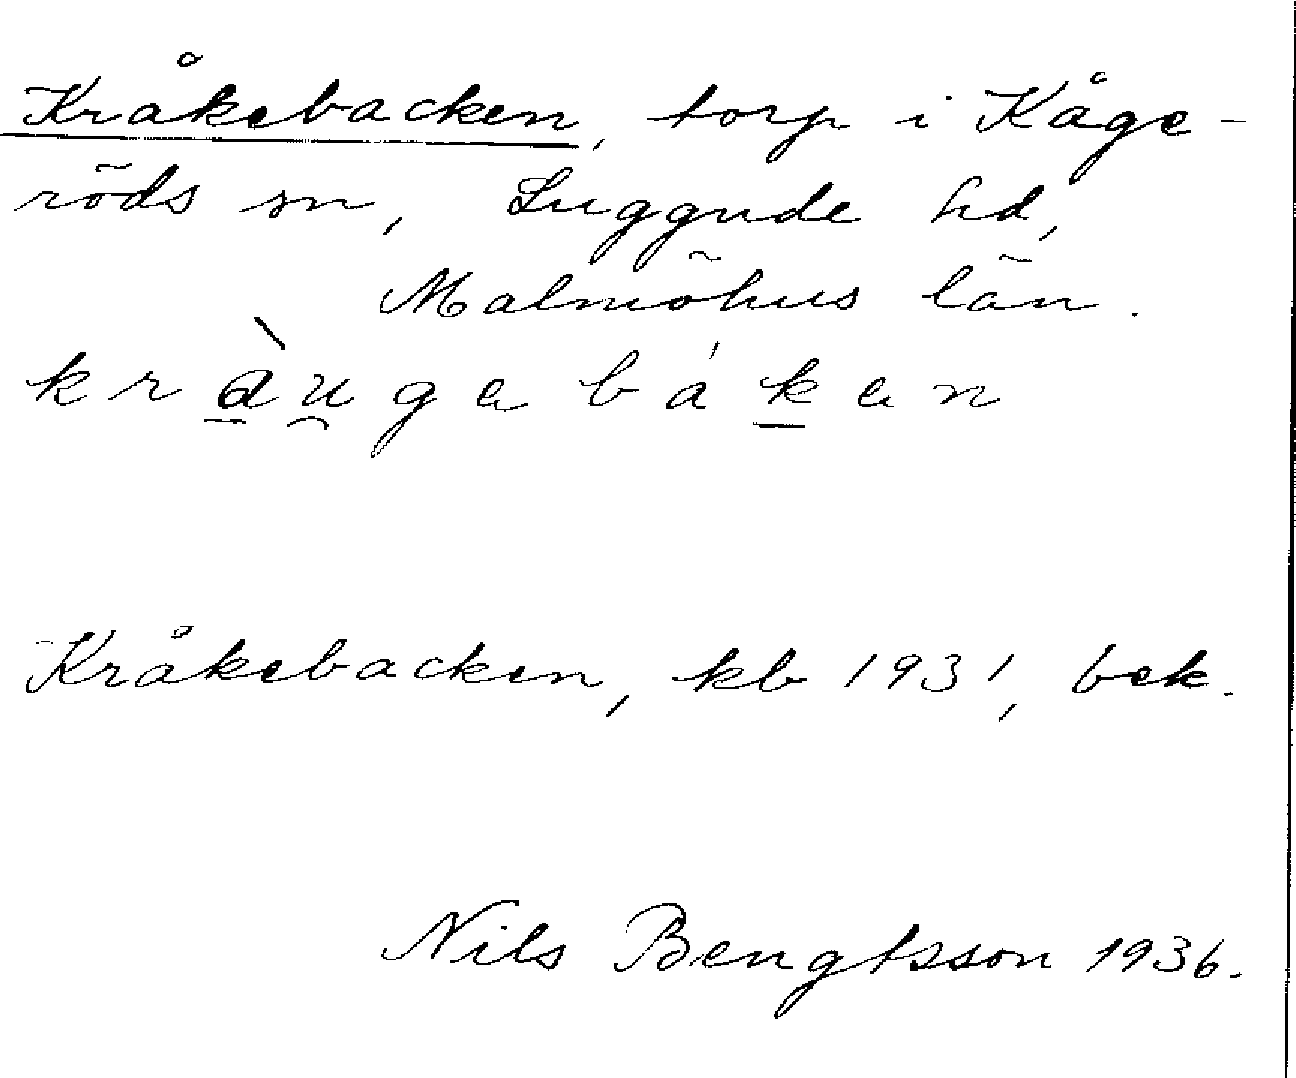 Kråkebacken, torp i Kåge-
röds sn, Luggude hd,
Malmöhus län.
kràu̯gabákan
Kråkebacken, kb 1931, bek.
Nils Bengtsson 1936.